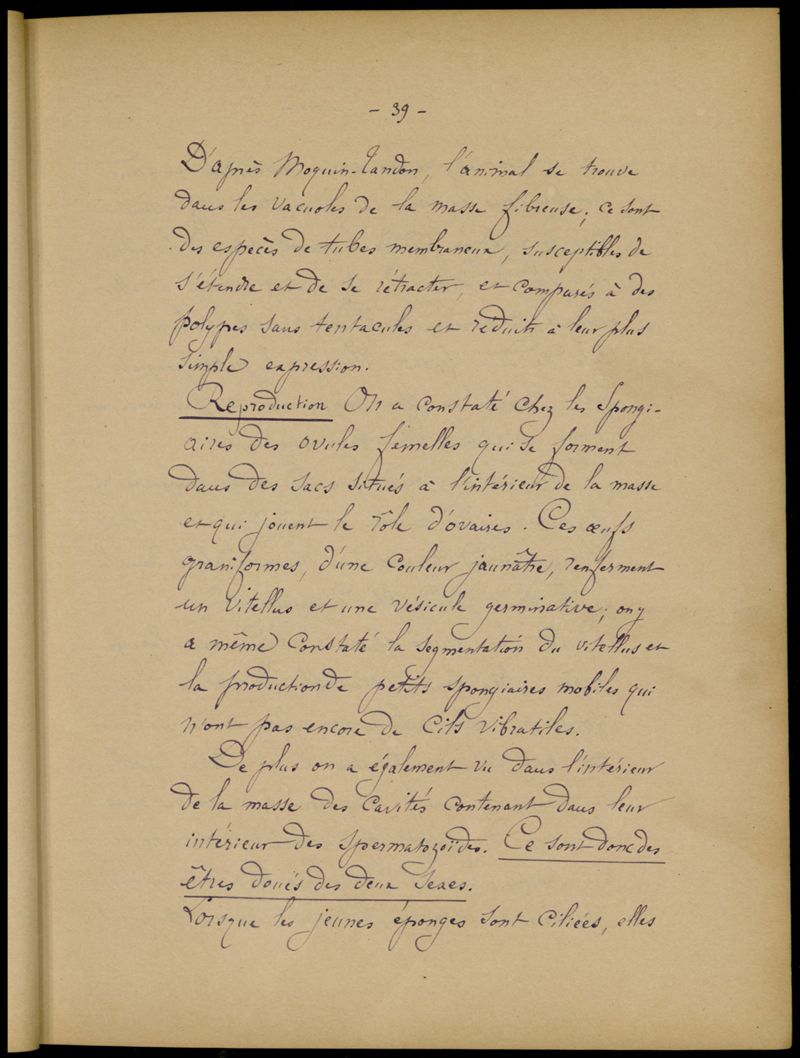 - 39 -
D'après Moquin-Tandon, l'animal se trouve
dans les vacuoles de la masse fibreuse; ce sont
des espèces de tubes membraneux, susceptibles de
s'étendre et de se rétracter, et comparés à des
polypes sans tentacules et réduits à leur plus
simple expression.
Reproduction On a constaté chez les Spongi-
aires des ovules femelles qui se forment
dans des sacs situés à l'intérieur de la masse
et qui jouent le rôle d'ovaires. Ces œufs
graniformes, d'une couleur jaunâtre, renferment
un vitellus et une vésicule germinative; on y
a même constaté la segmentation du vitellus et
la production de petits spongiaires mobiles qui
n'ont pas encore de cils vibratiles.
De plus on a également vu dans l'intérieur
de la masse des cavités contenant dans leur
intérieur des spermatozoïdes. Ce sont donc des
êtres doués des deux sexes.
Lorsque les jeunes éponges sont ciliées, elles